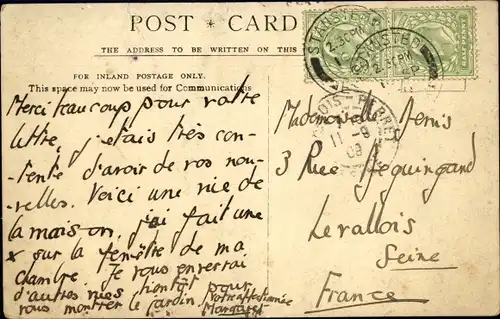 POST CARD
THE ADDRESS TO BE WRITTEN ON THIS
FOR INLAND POSTAGE ONLY.
This space may now be used for Communications
Merci beaucoup pour votre
lettre, j'etais très con-
-tente d'avoir de vos nou-
-velles. Voici une vue de
la maison, j'ai fait une
x sur la fenêtre de ma
chambre. Je vous enverrai
d'autres vues bientôt pour
vous montrer le jardin.
Votre affectionnée
Margaret
STANSTED
2.30PM
STANSTED
2.30PM
LEVALLOIS-PERRET
11-9
09
Mademoiselle Denis
3 Rue Jequingand
Levallois
Seine
France